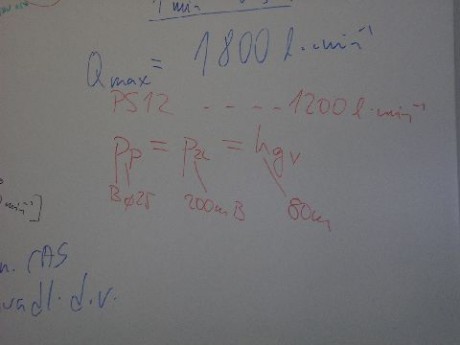 1 min
Qmax = 1800 l.min⁻¹
PS12 - - - - 1200 l.min⁻¹
Pp = Pzc = hgv
Bø25 200m B 80m
min⁻¹]
n. CAS
d.v.